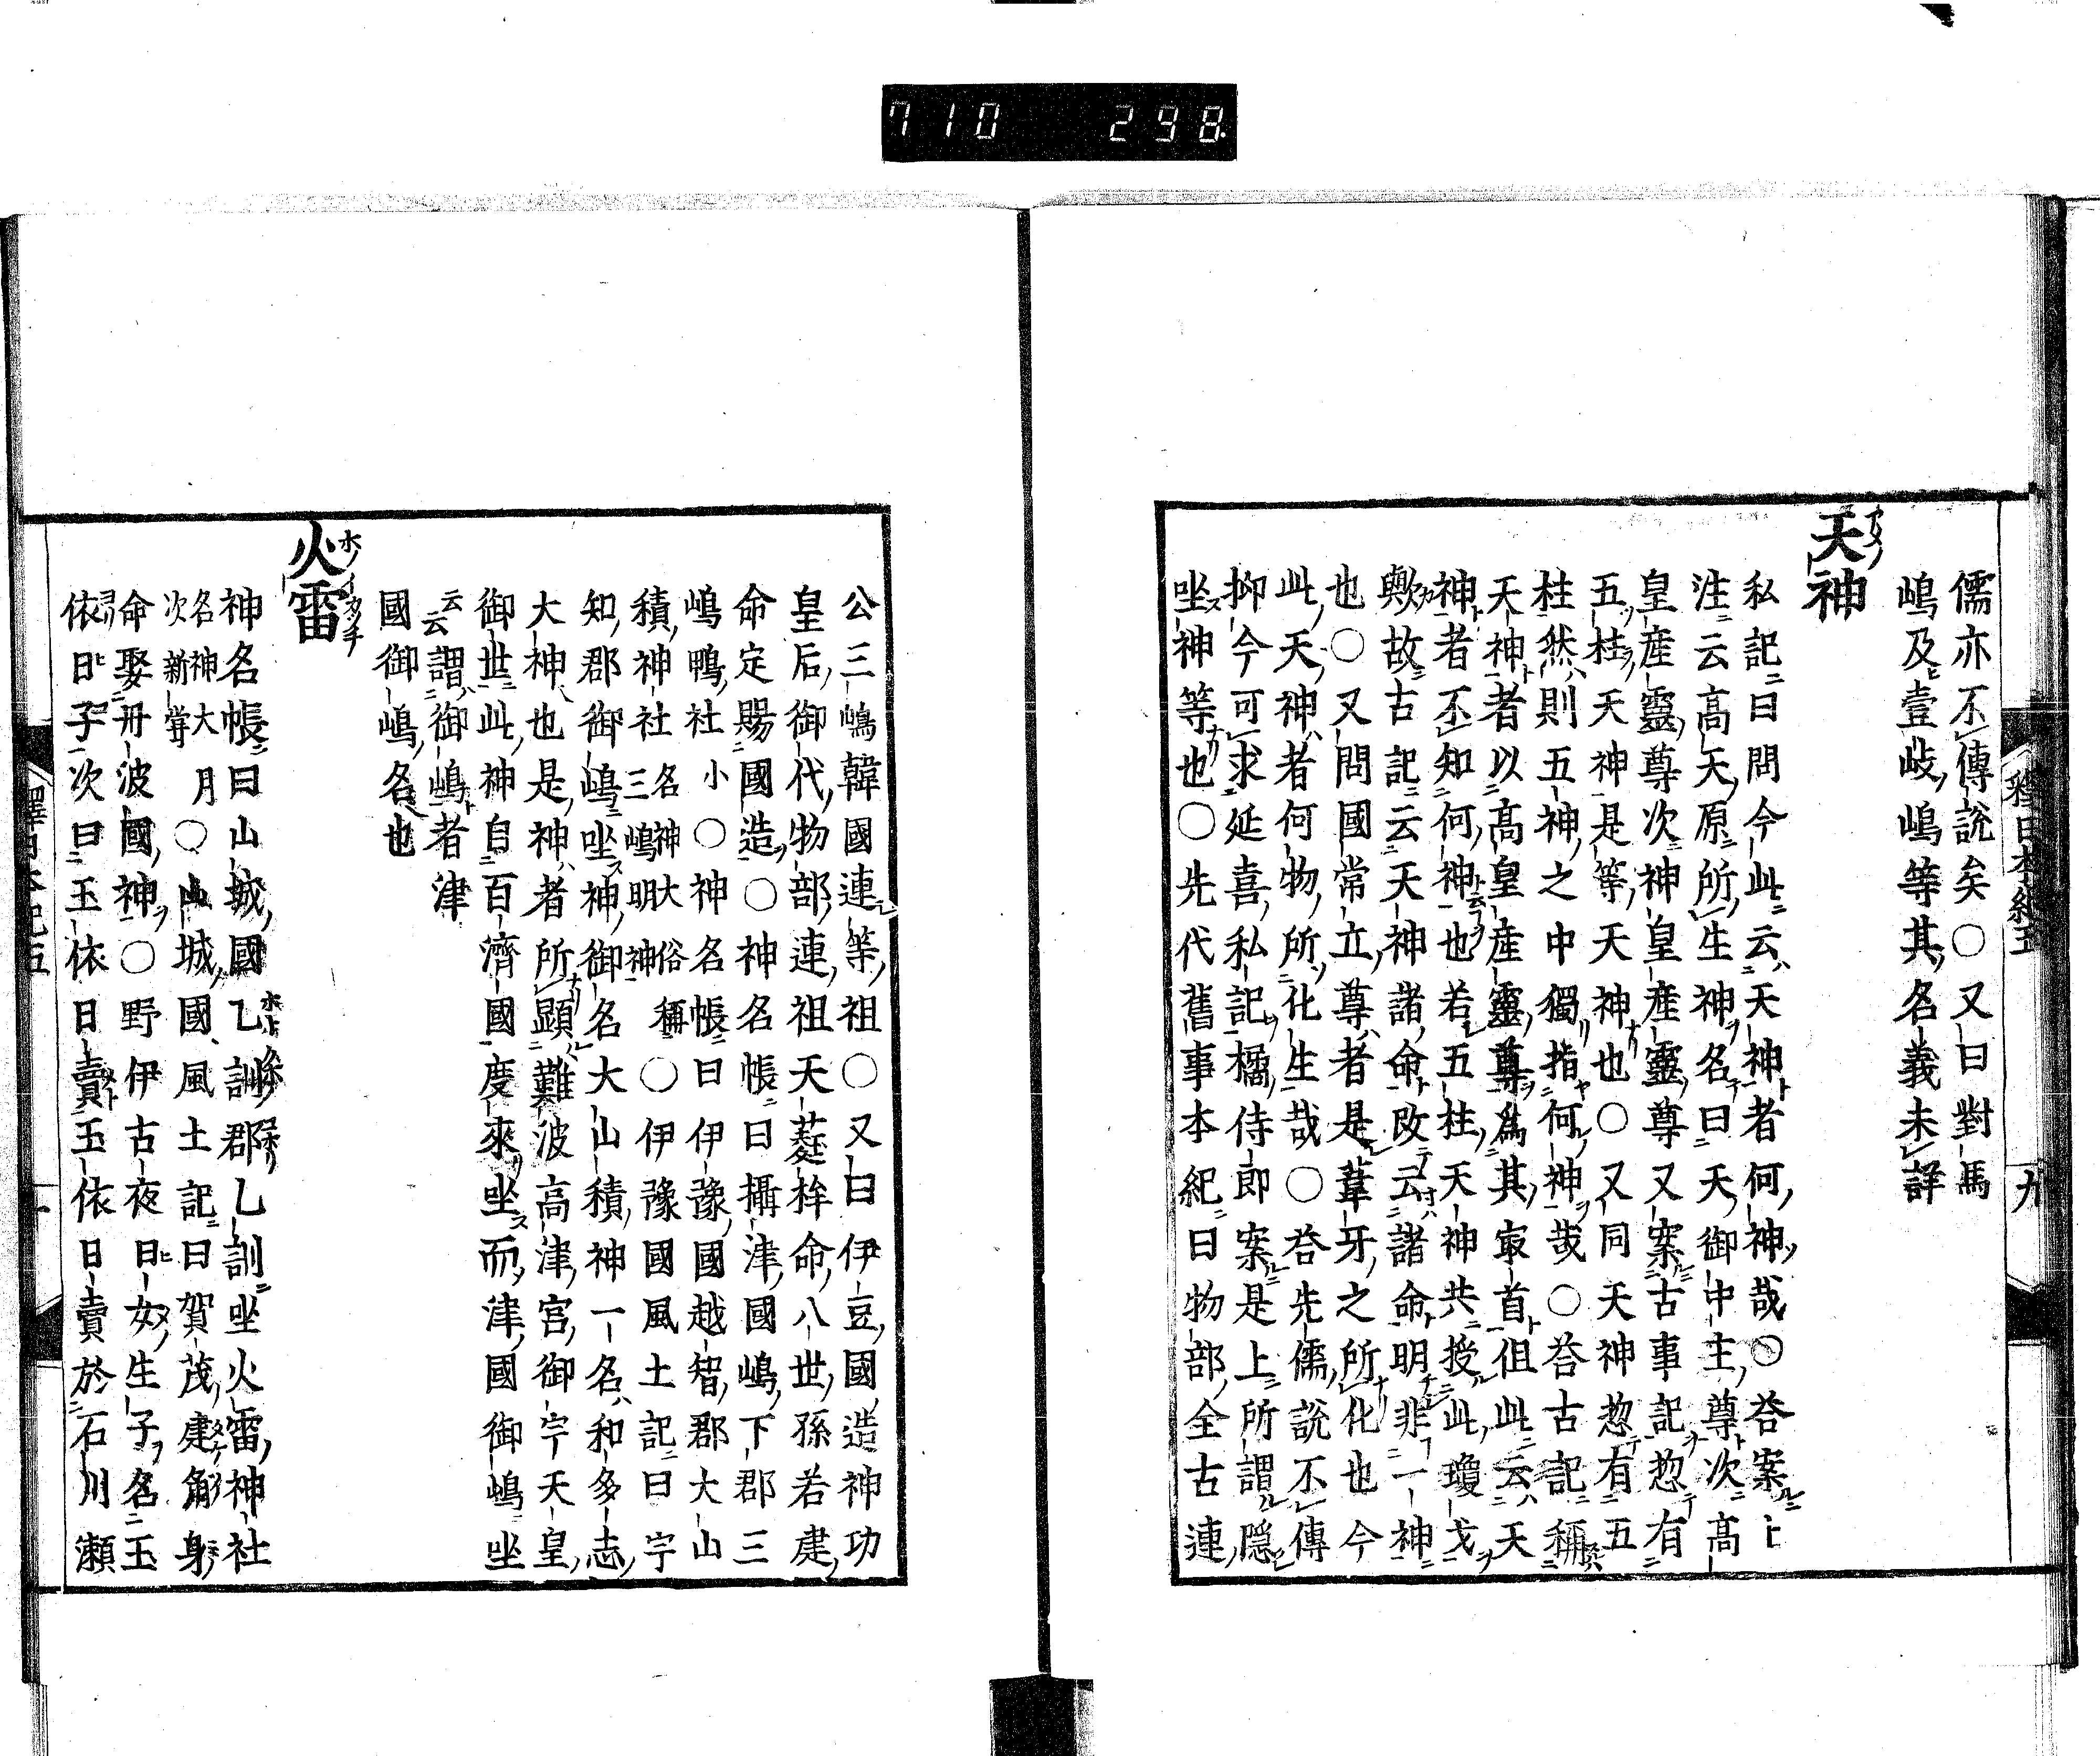 710 298.
釋日本紀五
九
儒亦不傳說矣○又曰對馬
嶋及壹岐嶋等其名義未詳
天神
私記曰問今此云天神者何神哉○荅案上
注云高天原所生神名曰天御中主尊次高
皇産靈尊次神皇産靈尊又案古事記惣有
五柱天神是等天神也○又同天神惣有五
柱然則五神之中獨指何神哉○荅古記稱
天神者以高皇産靈尊爲其最首但此云天
神者不知何神也若五柱天神共授此瓊戈
歟故古記云天神諸命改云諸命明非一神
也○又問國常立尊者是葦牙之所化也今
此天神者何物所化生哉○荅先儒說不傳
抑今可求延喜私記橘侍郎案是上所謂隱
坐神等也○先代舊事本紀曰物部全古連
公三嶋韓國連等祖○又曰伊豆國造神功
皇后御代物部連祖天蕤桙命八世孫若建
命定賜國造○神名帳曰攝津國嶋下郡三
嶋鴨社小○神名帳曰伊豫國越智郡大山
積神社名神大俗稱三嶋明神○伊豫國風土記曰宇
知郡御嶋坐神御名大山積神一名和多志
大神也是神者所顯難波高津宮御宇天皇
御世此神自百濟國度來坐而津國御嶋坐
云云謂御嶋者津
國御嶋名也
火雷
神名帳曰山城國乙訓郡乙訓坐火雷神社
名神大月次新甞○山城國風土記曰賀茂建角身
命娶丹波國神○野伊古夜日女生子名玉
依日子次曰玉依日賣玉依日賣於石川瀬
釋日本紀五
十